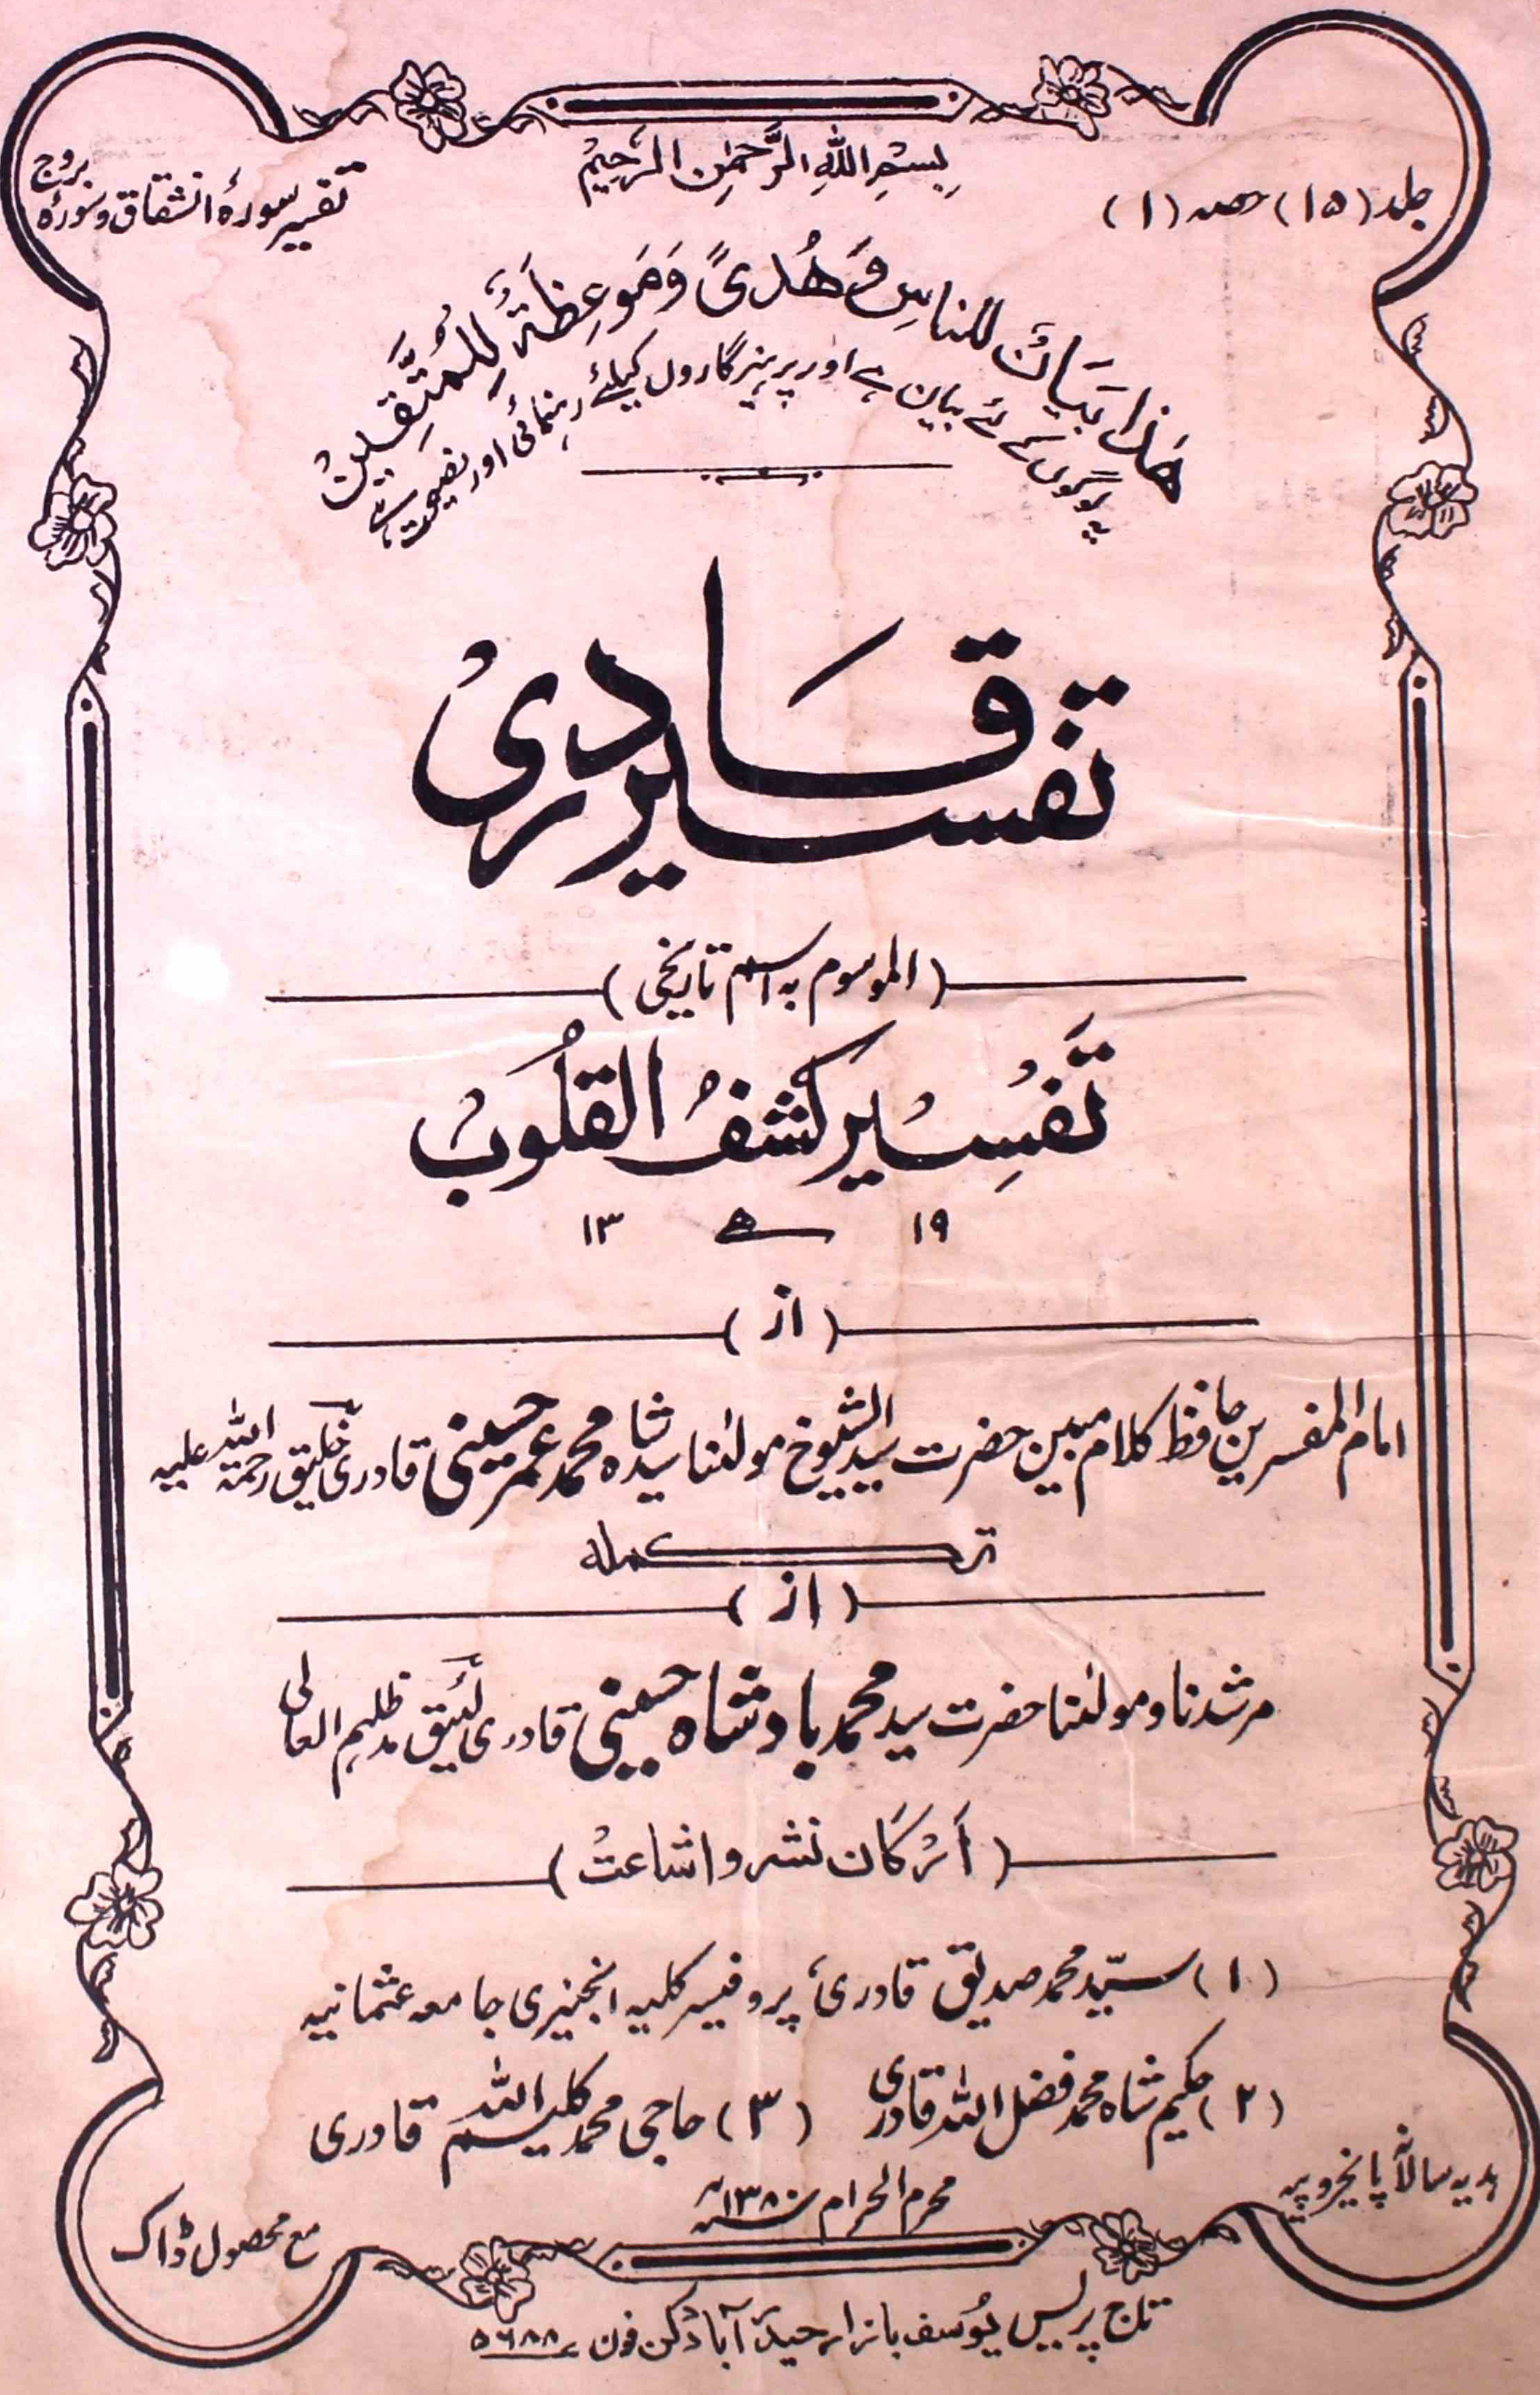 بِسْمِ اللهِ الرَّحْمٰنِ الرَّحِيْمُ
جلد (۱۵) حصہ (۱)
تفسیر سورۂ انشقاق و سورۂ بروج
هَذَا بَيَانٌ للناسِ وَ هُدىً وَمَوعِظَةٌ لِلْمُتَّقِينْ
یہ لوگوں کے لئے بیان ہے اور پرہیزگاروں کیلئے رہنمائی اور نصیحت ہے
تفسیر قادری
(الموسوم بہ اسم تاریخی)
تَفْسِیْر کشفُ القُلُوبْ
۱۹ ھ ۱۳
(از)
امام المفسرین حافظ کلام مبین حضرت سید الشیوخ مولٰنا سید شاہ محمد عمر حسینی قادری خلیق رحمۃ اللہ علیہ
تکملہ
(از)
مرشدنا و مولٰنا حضرت سید محمد بادشاہ حسینی قادری لئیق مدظلہم العالی
(اَرْکَان نشر و اشاعتْ)
(۱) سیّد محمد صدیق قادری، پروفیسر کلیہ انجنیری جامعہ عثمانیہ
(۲) حکیم شاہ محمد فضل اللہ قادری (۳) حاجی محمد کلیم اللہ قادری
محرم الحرام ۱۳۸۰ھ
ہدیہ سالانہ پانچروپیہ
مع محصول ڈاک
تاج پریس یوُسف بازار حیدرآباد دکن فون ۵۶۸۸